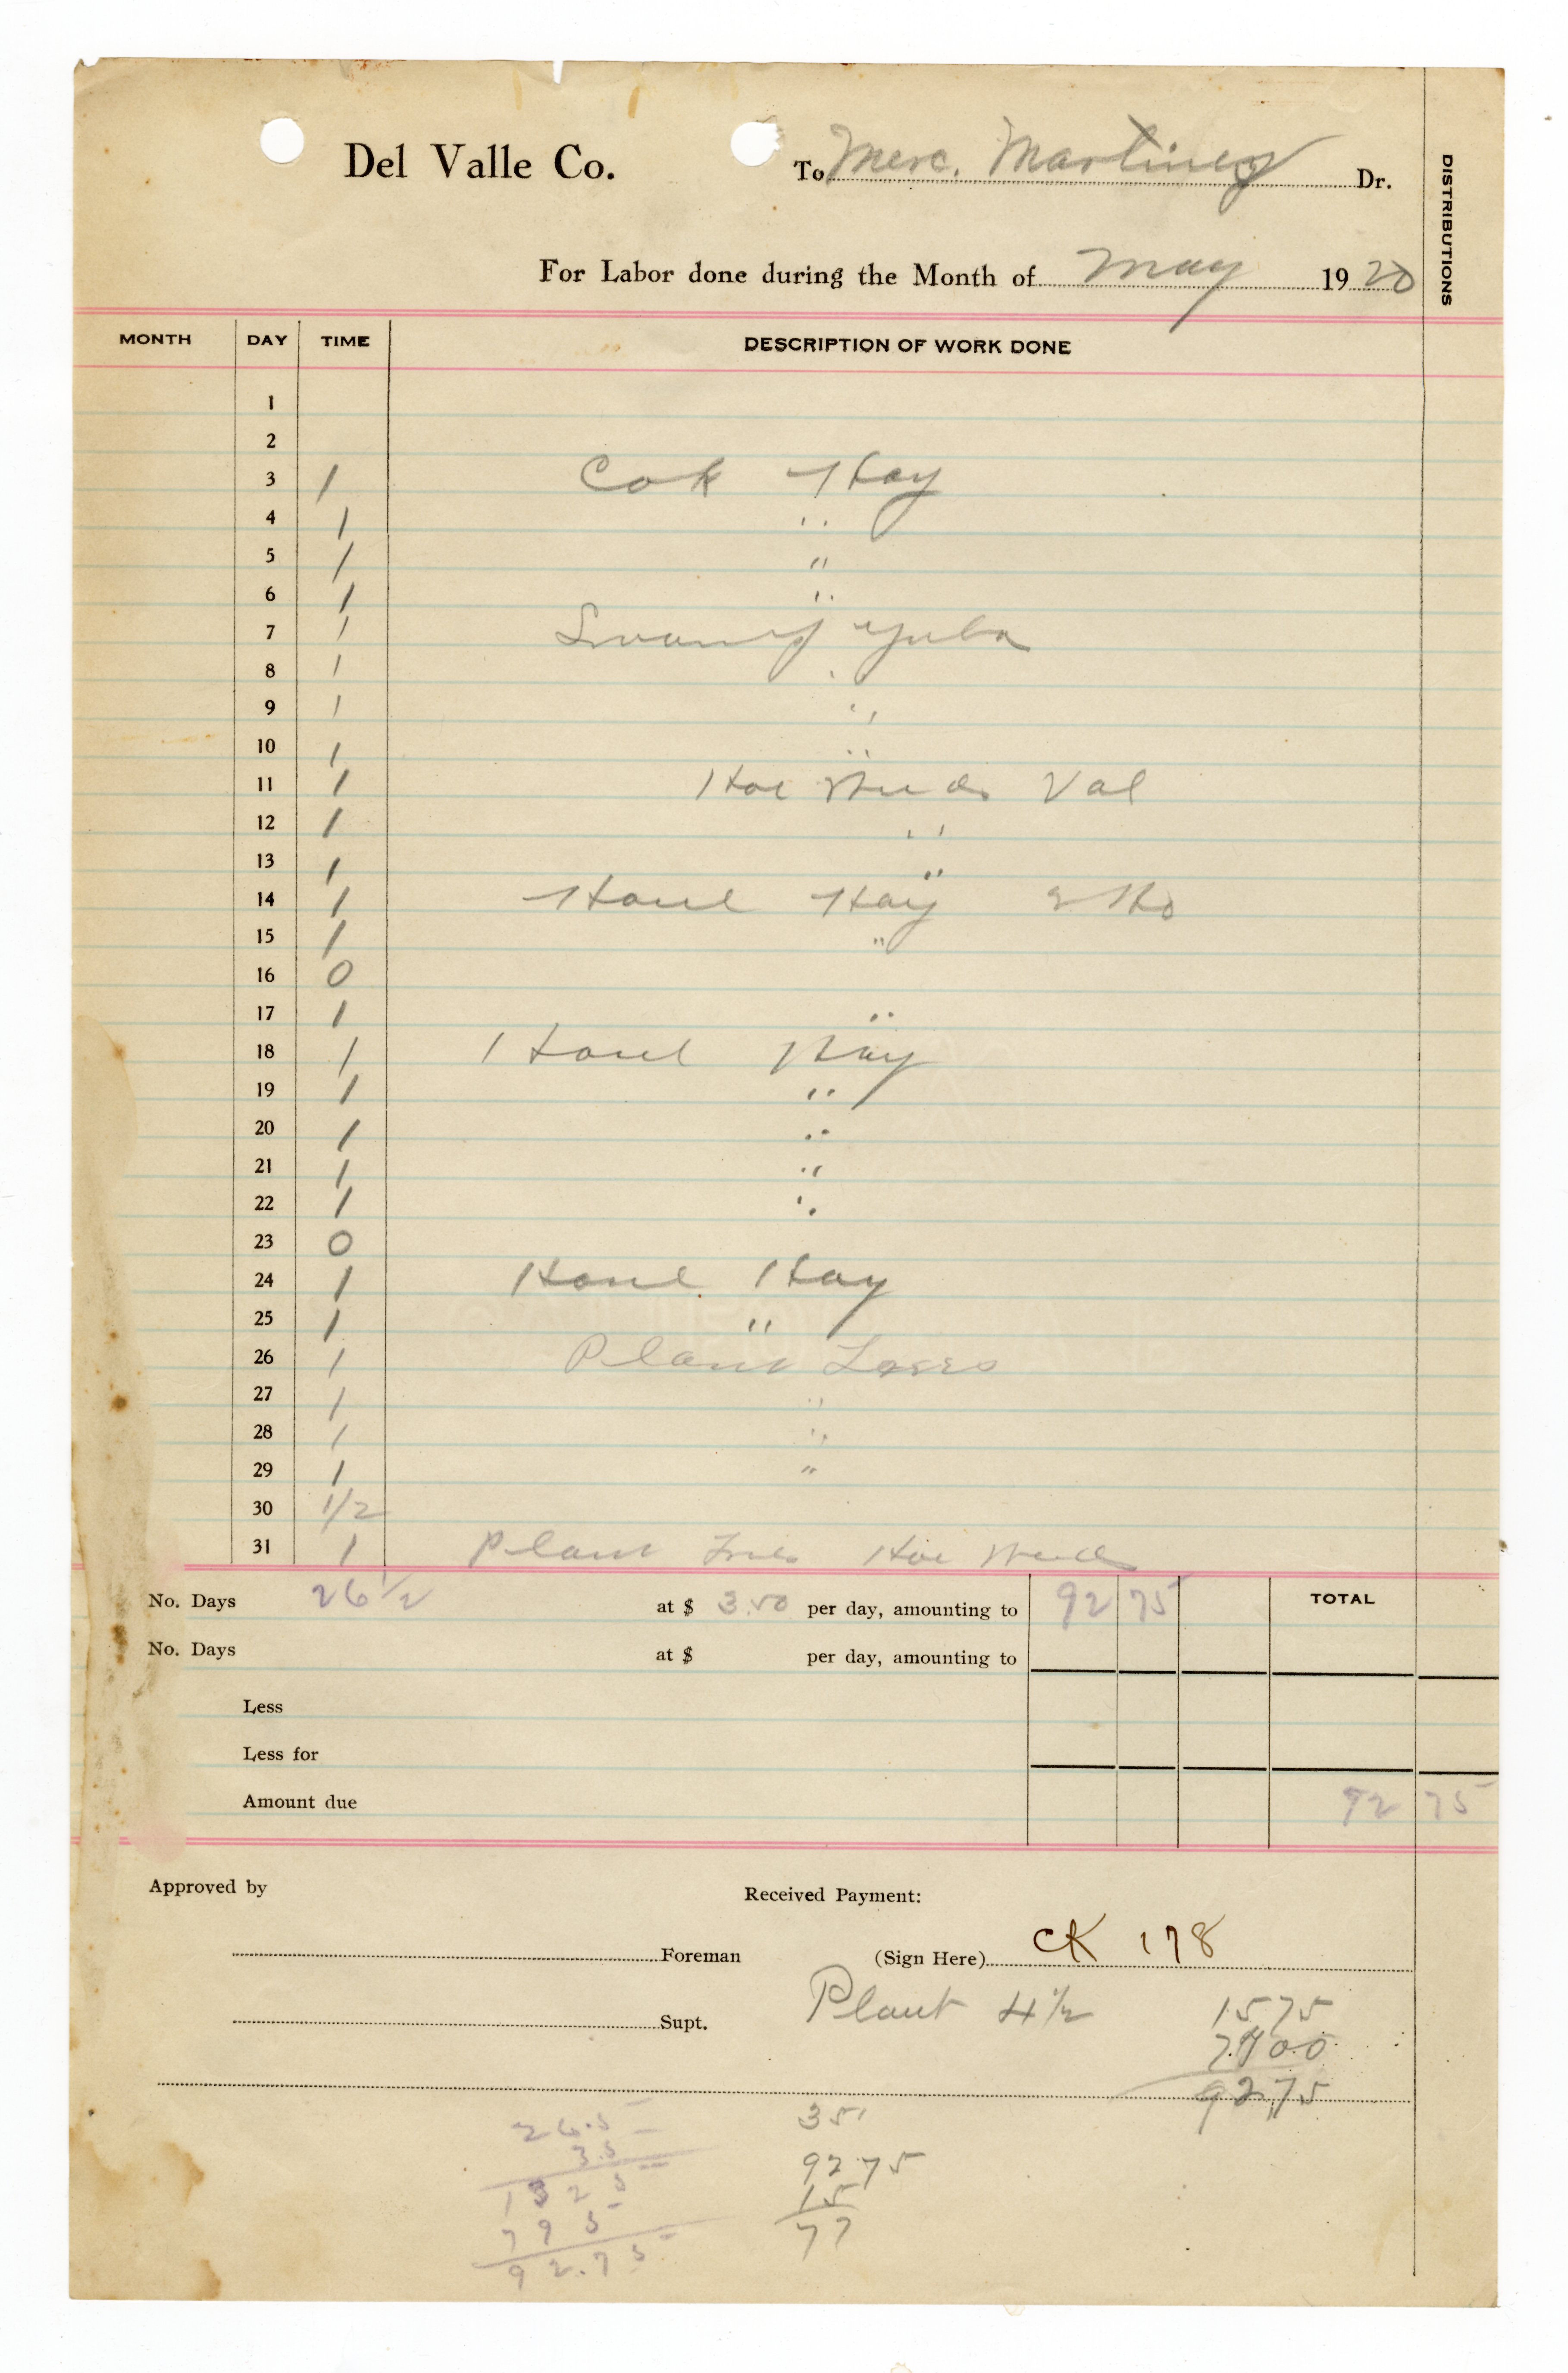 Del Valle Co. To Merc. Martinez Dr.
DISTRIBUTIONS
For Labor done during the Month of May 1920
MONTH DAY TIME DESCRIPTION OF WORK DONE
1
2
3 1 Cok Hay
4 1 " 
5 1 "
6 1 "
7 1 Yuba
8 1 "
9 1 "
10 1 "
11 1 Hoe Weeds Val
12 1 "
13 1 "
14 1 Haul Hay
15 1 "
16 0
17 1 "
18 1 Haul Hay
19 1 "
20 1 "
21 1 "
22 1 "
23 0
24 1 Haul Hay
25 1 "
26 1 Plant
27 1 "
28 1 "
29 1 "
30 1/2
31 1 Plant Hoe Weeds
No. Days 26 1/2 at $ 3.50 per day, amounting to 92 75 TOTAL
No. Days at $ per day, amounting to
Less
Less for
Amount due 92 75
Approved by Received Payment:
Foreman (Sign Here) CK 178
Supt. Plant 4 1/2 15 75
7700
92,75
26.5 35
3.5 92 75
1325 15
795 77
92.75